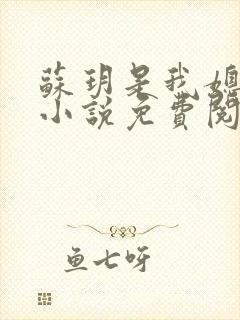 蘇玥是我媳
小說免費閱
鱼七呀